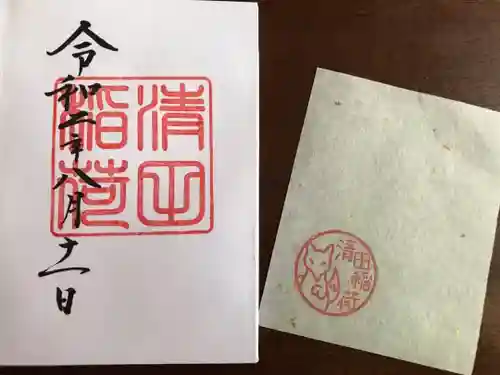 清田
稲荷
令和二年八月十一日
清田稲荷